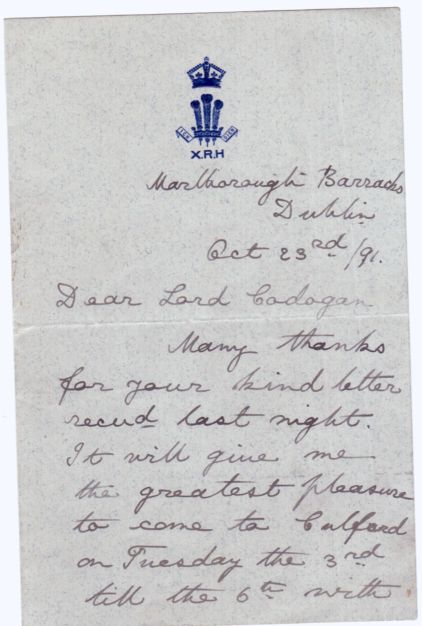 ICH DIEN
X.R.H
Marlborough Barracks
Dublin
Oct 23rd/91.
Dear Lord Cadogan
Many thanks
for your kind letter
recvd last night.
It will give me
the greatest pleasure
to come to Culford
on Tuesday the 3rd
till the 6th with